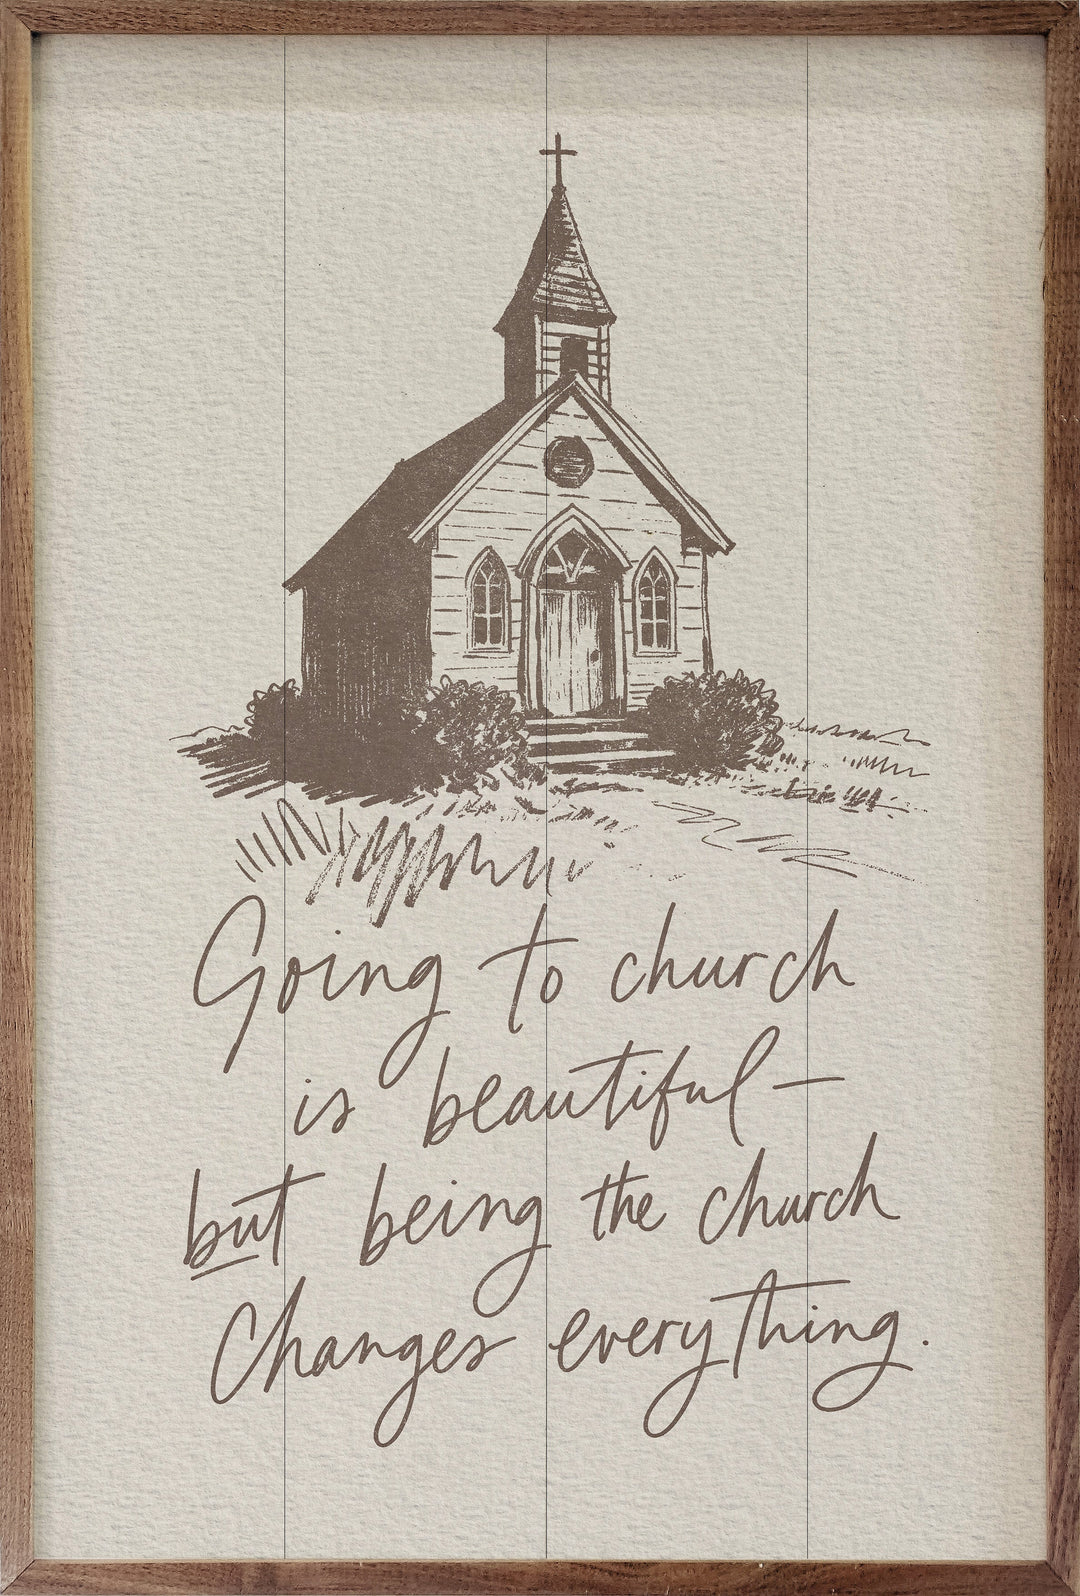 Going to church
is beautiful—
but being the church
changes everything.